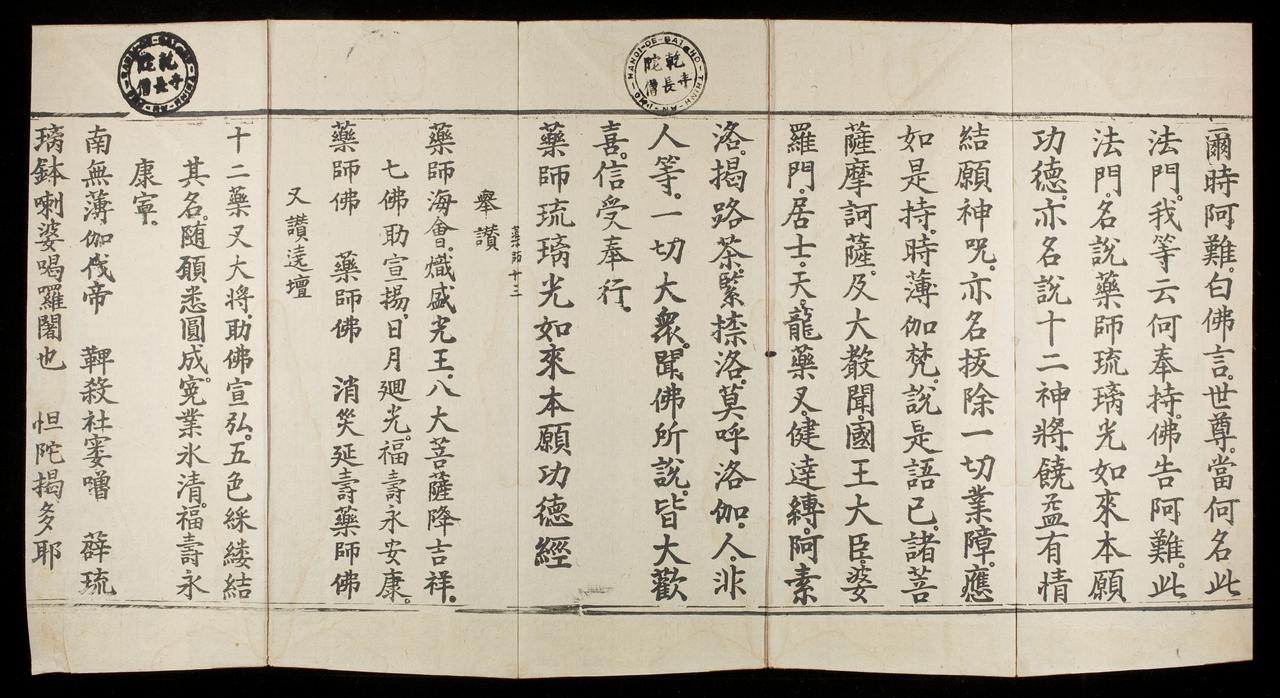 爾時阿難。白佛言。世尊。當何名此
法門。我等云何奉持。佛告阿難。此
法門。名說藥師琉璃光如來本願
功德。亦名說十二神將。饒益有情
結願神呪。亦名拔除一切業障。應
如是持。時薄伽梵。說是語已。諸菩
薩摩訶薩。及大聲聞。國王大臣。婆
羅門。居士。天。龍藥叉。健達縛。阿素
洛。揭路茶。緊捺洛。莫呼洛伽。人。非
人等。一切大衆。聞佛所說。皆大歡
喜。信受奉行。
藥師琉璃光如來本願功德經
藥師十三
舉讃
藥師海會。熾盛光王。八大菩薩降吉祥。
七佛助宣揚。日月廻光。福壽永安康。
藥師佛 藥師佛 消災延壽藥師佛
又讃達壇
十二藥叉大將。助佛宣弘。五色綵縷結
其名。随願悉圓成。寃業氷清。福壽永
康寧。
南無薄伽伐帝 鞞殺社窶嚕 薜琉
璃鉢喇婆喝羅闍也 怛陀揭多耶
乾寺
陀長僧
HANOI-DE-BAT-HO-THINH-AN-PHO
乾寺
陀長僧